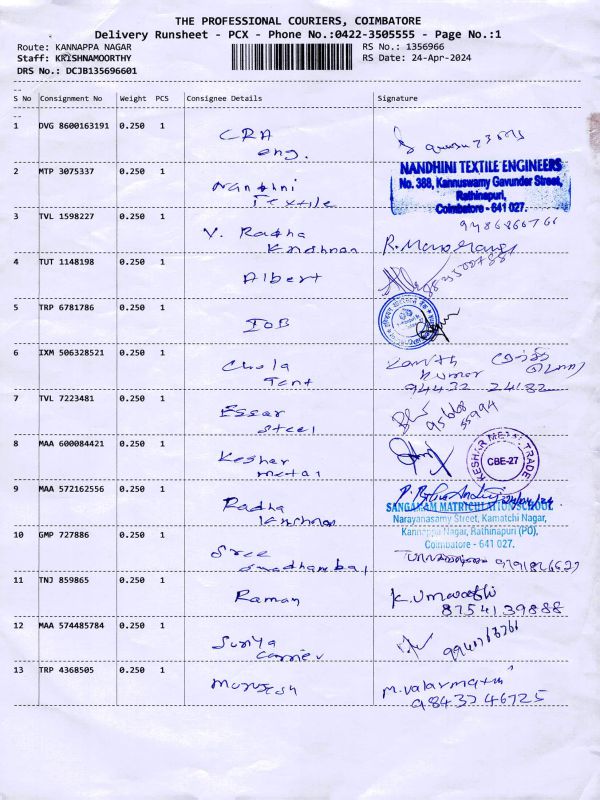 THE PROFESSIONAL COURIERS, COIMBATORE
Delivery Runsheet - PCX - Phone No.:0422-3505555 - Page No.:1
Route: KANNAPPA NAGAR
RS No.: 1356966
Staff: KRISHNAMOORTHY
RS Date: 24-Apr-2024
DRS No.: DCJB135696601
--
S No Consignment No Weight PCS Consignee Details Signature
--
1 DVG 8600163191 0.250 1 CRA
eng.
2 MTP 3075337 0.250 1 Nandhini
Textile
NANDHINI TEXTILE ENGINEERS
No. 388, Kannuswamy Gavunder Street,
Rathinapuri,
Coimbatore - 641 027.
3 TVL 1598227 0.250 1 V. Radha
Krishnan
R. Manoharan
4 TUT 1148198 0.250 1 Albert
5 TRP 6781786 0.250 1 IOB
6 IXM 506328521 0.250 1 Chola
Tent
Kumar
94432 24182
7 TVL 7223481 0.250 1 Essar
Steel
95668
55994
8 MAA 600084421 0.250 1 Keshar
metal
KESHAR METAL TRADE
CBE-27
9 MAA 572162556 0.250 1 Radha
Krishnan
SANGANAM MATRICULATION SCHOOL
Narayanasamy Street, Kamatchi Nagar,
Kannappa Nagar, Rathinapuri (PO),
Coimbatore - 641 027.
10 GMP 727886 0.250 1 Sree
11 TNJ 859865 0.250 1 Raman
K. Umavathi
8754139888
12 MAA 574485784 0.250 1 Suriya
Carrier
13 TRP 4368505 0.250 1 Murugesh
M. Valarmathi
9843746725